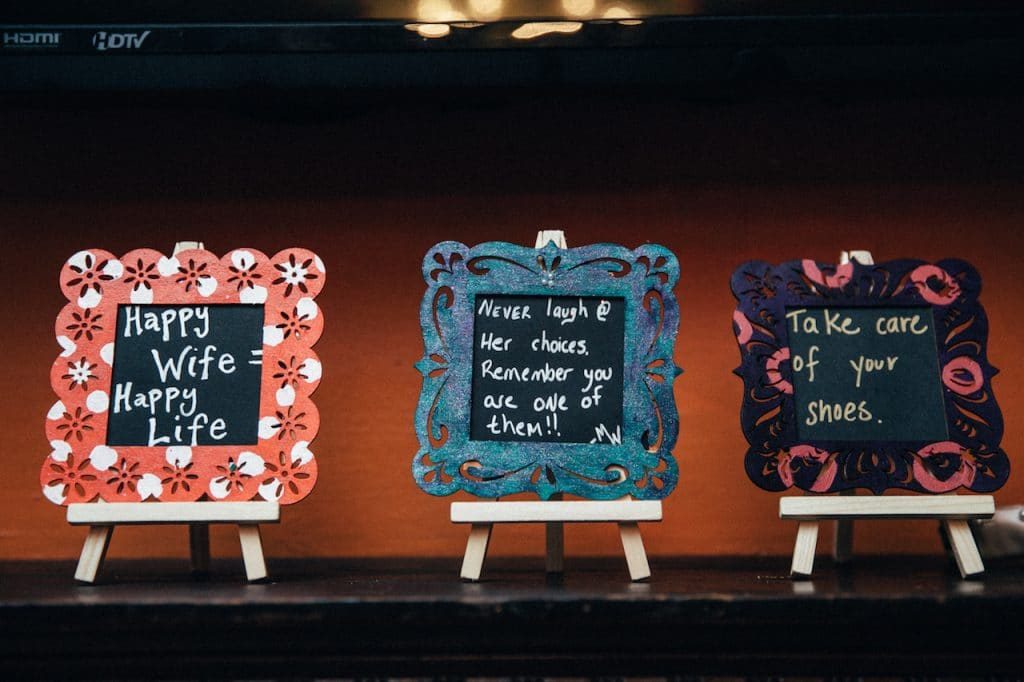 HDMI HDTV
Happy
Wife =
Happy
Life
Never laugh @
Her choices.
Remember you
are one of
them!!
MW
Take care
of your
shoes.